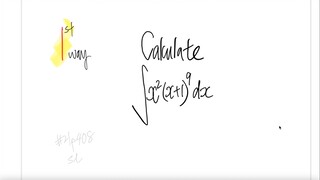 1st way
Calculate
∫x²(x+1)⁹dx